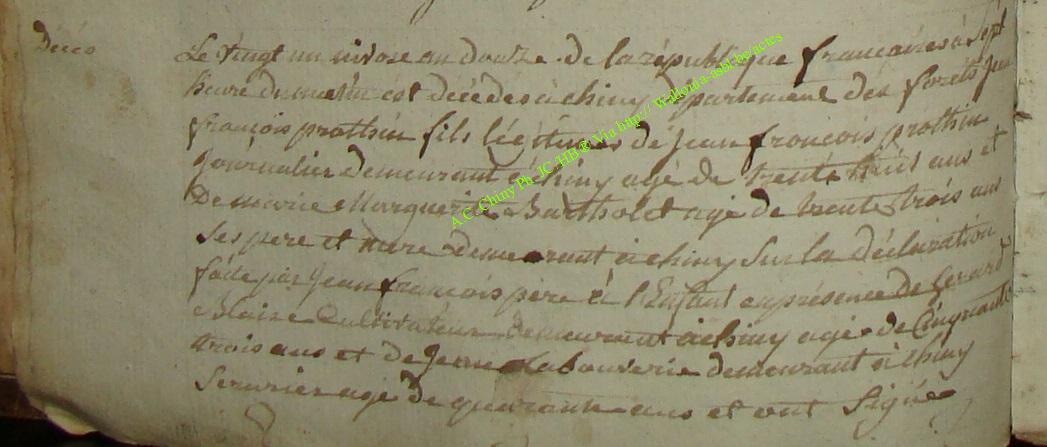 Déces
Le vingt un nivose an douze de la république françaises à sept
heure du matin est décédes à chiny département des forêts jean
françois prothin fils légétimes de jean françois prothin
journalier demeurant à chiny agé de trente huit ans et
De marie Marguerite Barthelet agé de trente trois ans
Ses pere et mere demeurant à chiny Sur la déclaration
faite par jean françois père à l'Enfant en présence de Gerard
Blaise Cultivateur demeurant à chiny agé de Cinquante
trois ans et de Labouverie demeurant à chiny
Serurier agé de quarante ans et ont Signé
A.C. Chiny Ph. JC. HB ® Via http:// Wallonia-asbl.be/actes